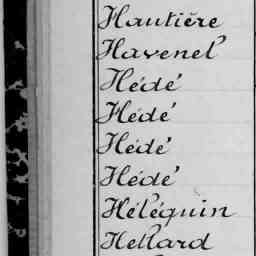 Hautière
Havenel
Hédé
Hédé
Hédé
Hédé
Héléguin
Hellard